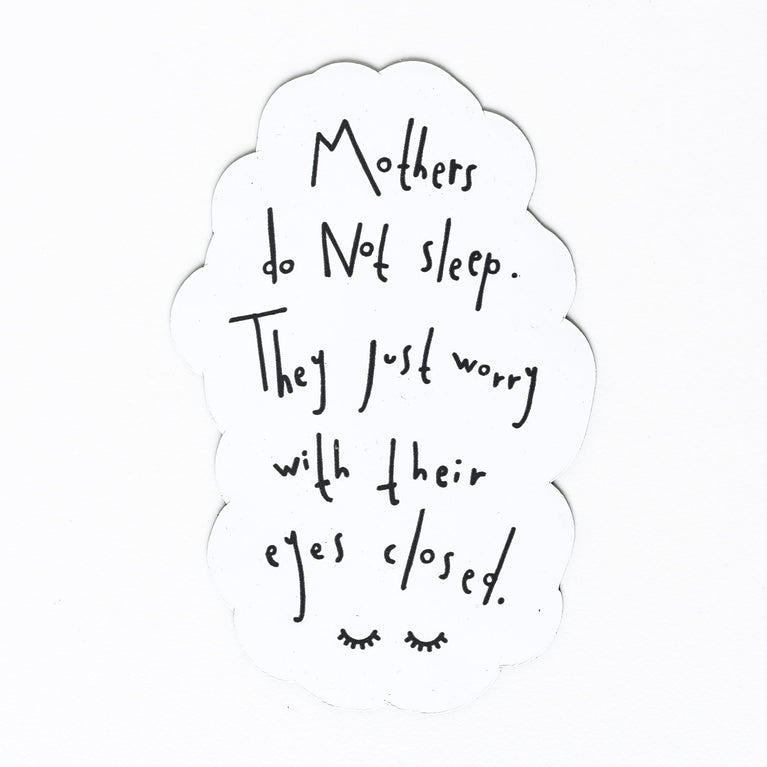 Mothers
do Not sleep.
They just worry
with their
eyes closed.